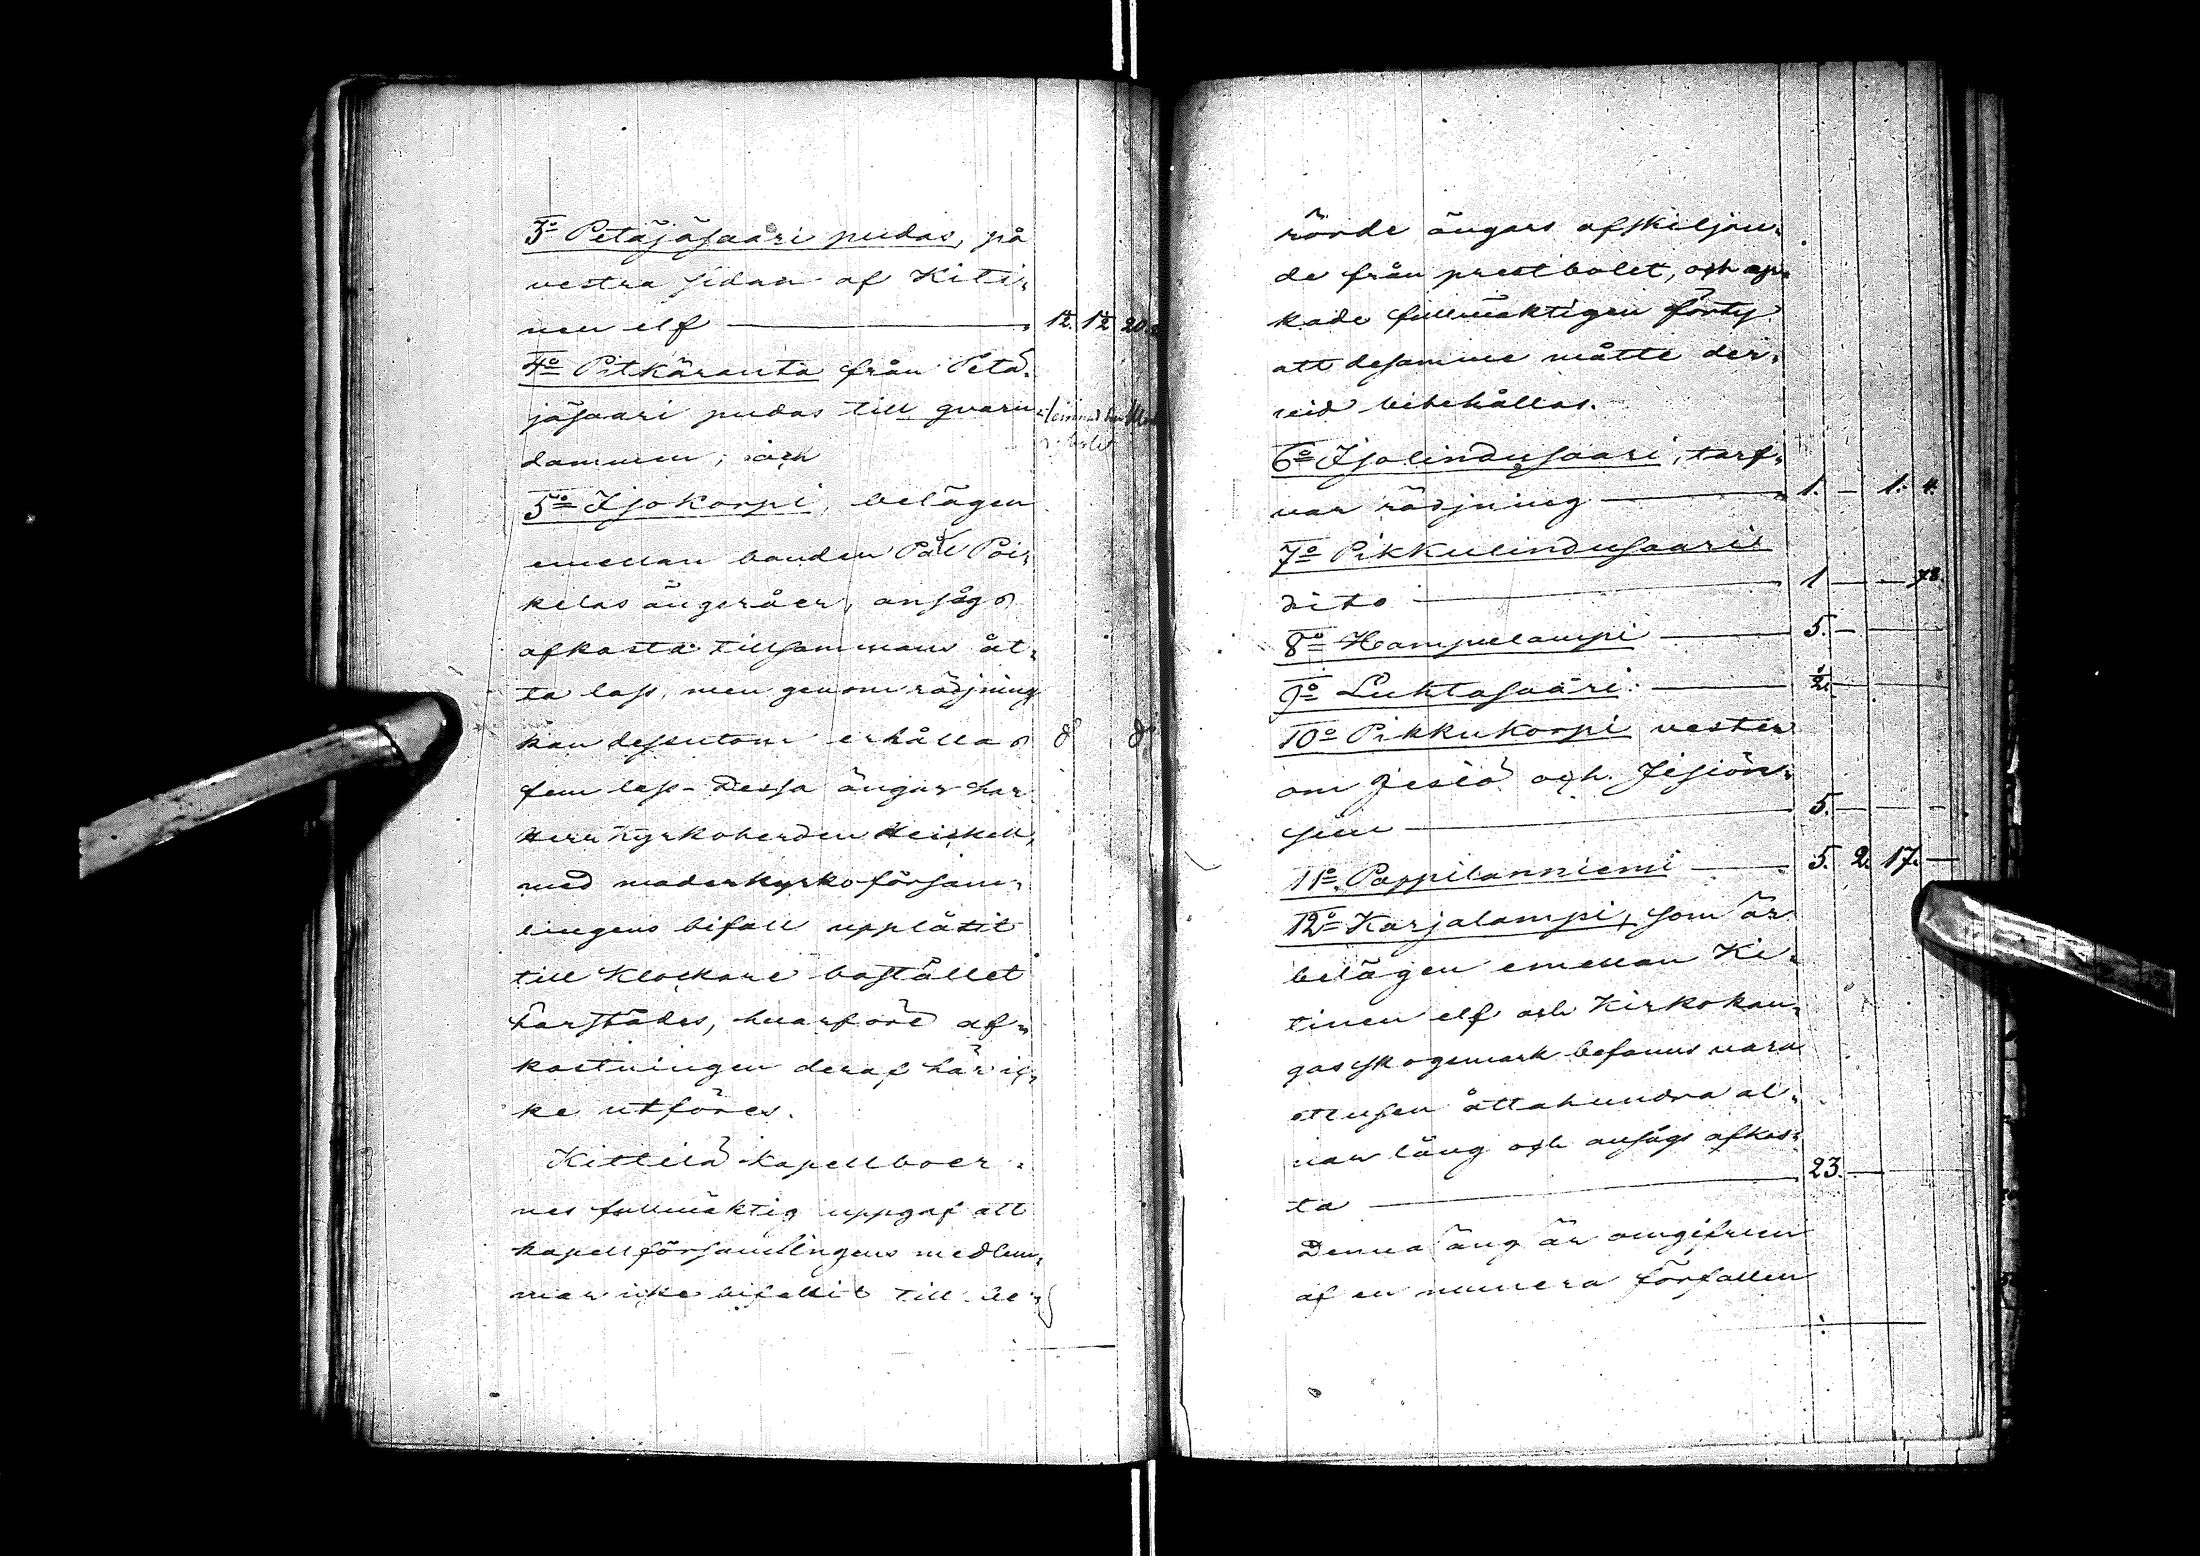 3º Petäjäsaari pudas, på
vestra sidan af Kiti-
nen elf — 12. 12 20.
4º Pitkäranta från Petä-
jäsaari pudas till qvarn-
dammen; och
5º Isokorpi, belägen
emellan bonden Pål Poi-
kelas ängsråer, ansågs
afkasta tillsammans åt-
ta lass, men genom rödjning
kan dessutom erhållas 8 8
fem lass. Dessa ängar har
Herr Kyrkoherden Heickell,
med moderkyrkoförsam-
lingens bifall upplåtit
till Klockare bostället
härstädes, hvarföre af-
kastningen deraf här ic-
ke utföres.
Kittilä kapellboer-
nes fullmäktig uppgaf att
kapellförsamlingens medlem-
mar icke bifallit till be-
rörde ängars afskiljan-
de från prestbolet, och
kade fullmäktigen förty
att desamme måtte der-
vid bibehållas.
6º Isolindusaari, tarf-
var rödjning — 1. — 1. 4.
7º Pikkulindusaari
dito — 1 — —
8º Hampulampi — 5. —
9º Luhtasaari — ½. —
10º Pikkukorpi vester
om Jesiö och Jesiön-
suu — 5. —
11º Pappilanniemi — 5. 2. 17. —
12º Karjalampi, som är
belägen emellan Ki-
tinen elf och Kirkokan-
gas skogsmark befanns vara
ettusen åttahundra al-
nar lång och ansågs afkas-
ta — 23. —
Denna äng är omgifven
af en numera förfallen